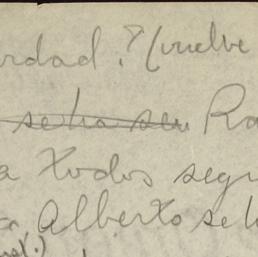 rdad. ? (vuelve
se ha seu Ra
a todos segu
Alberto se h